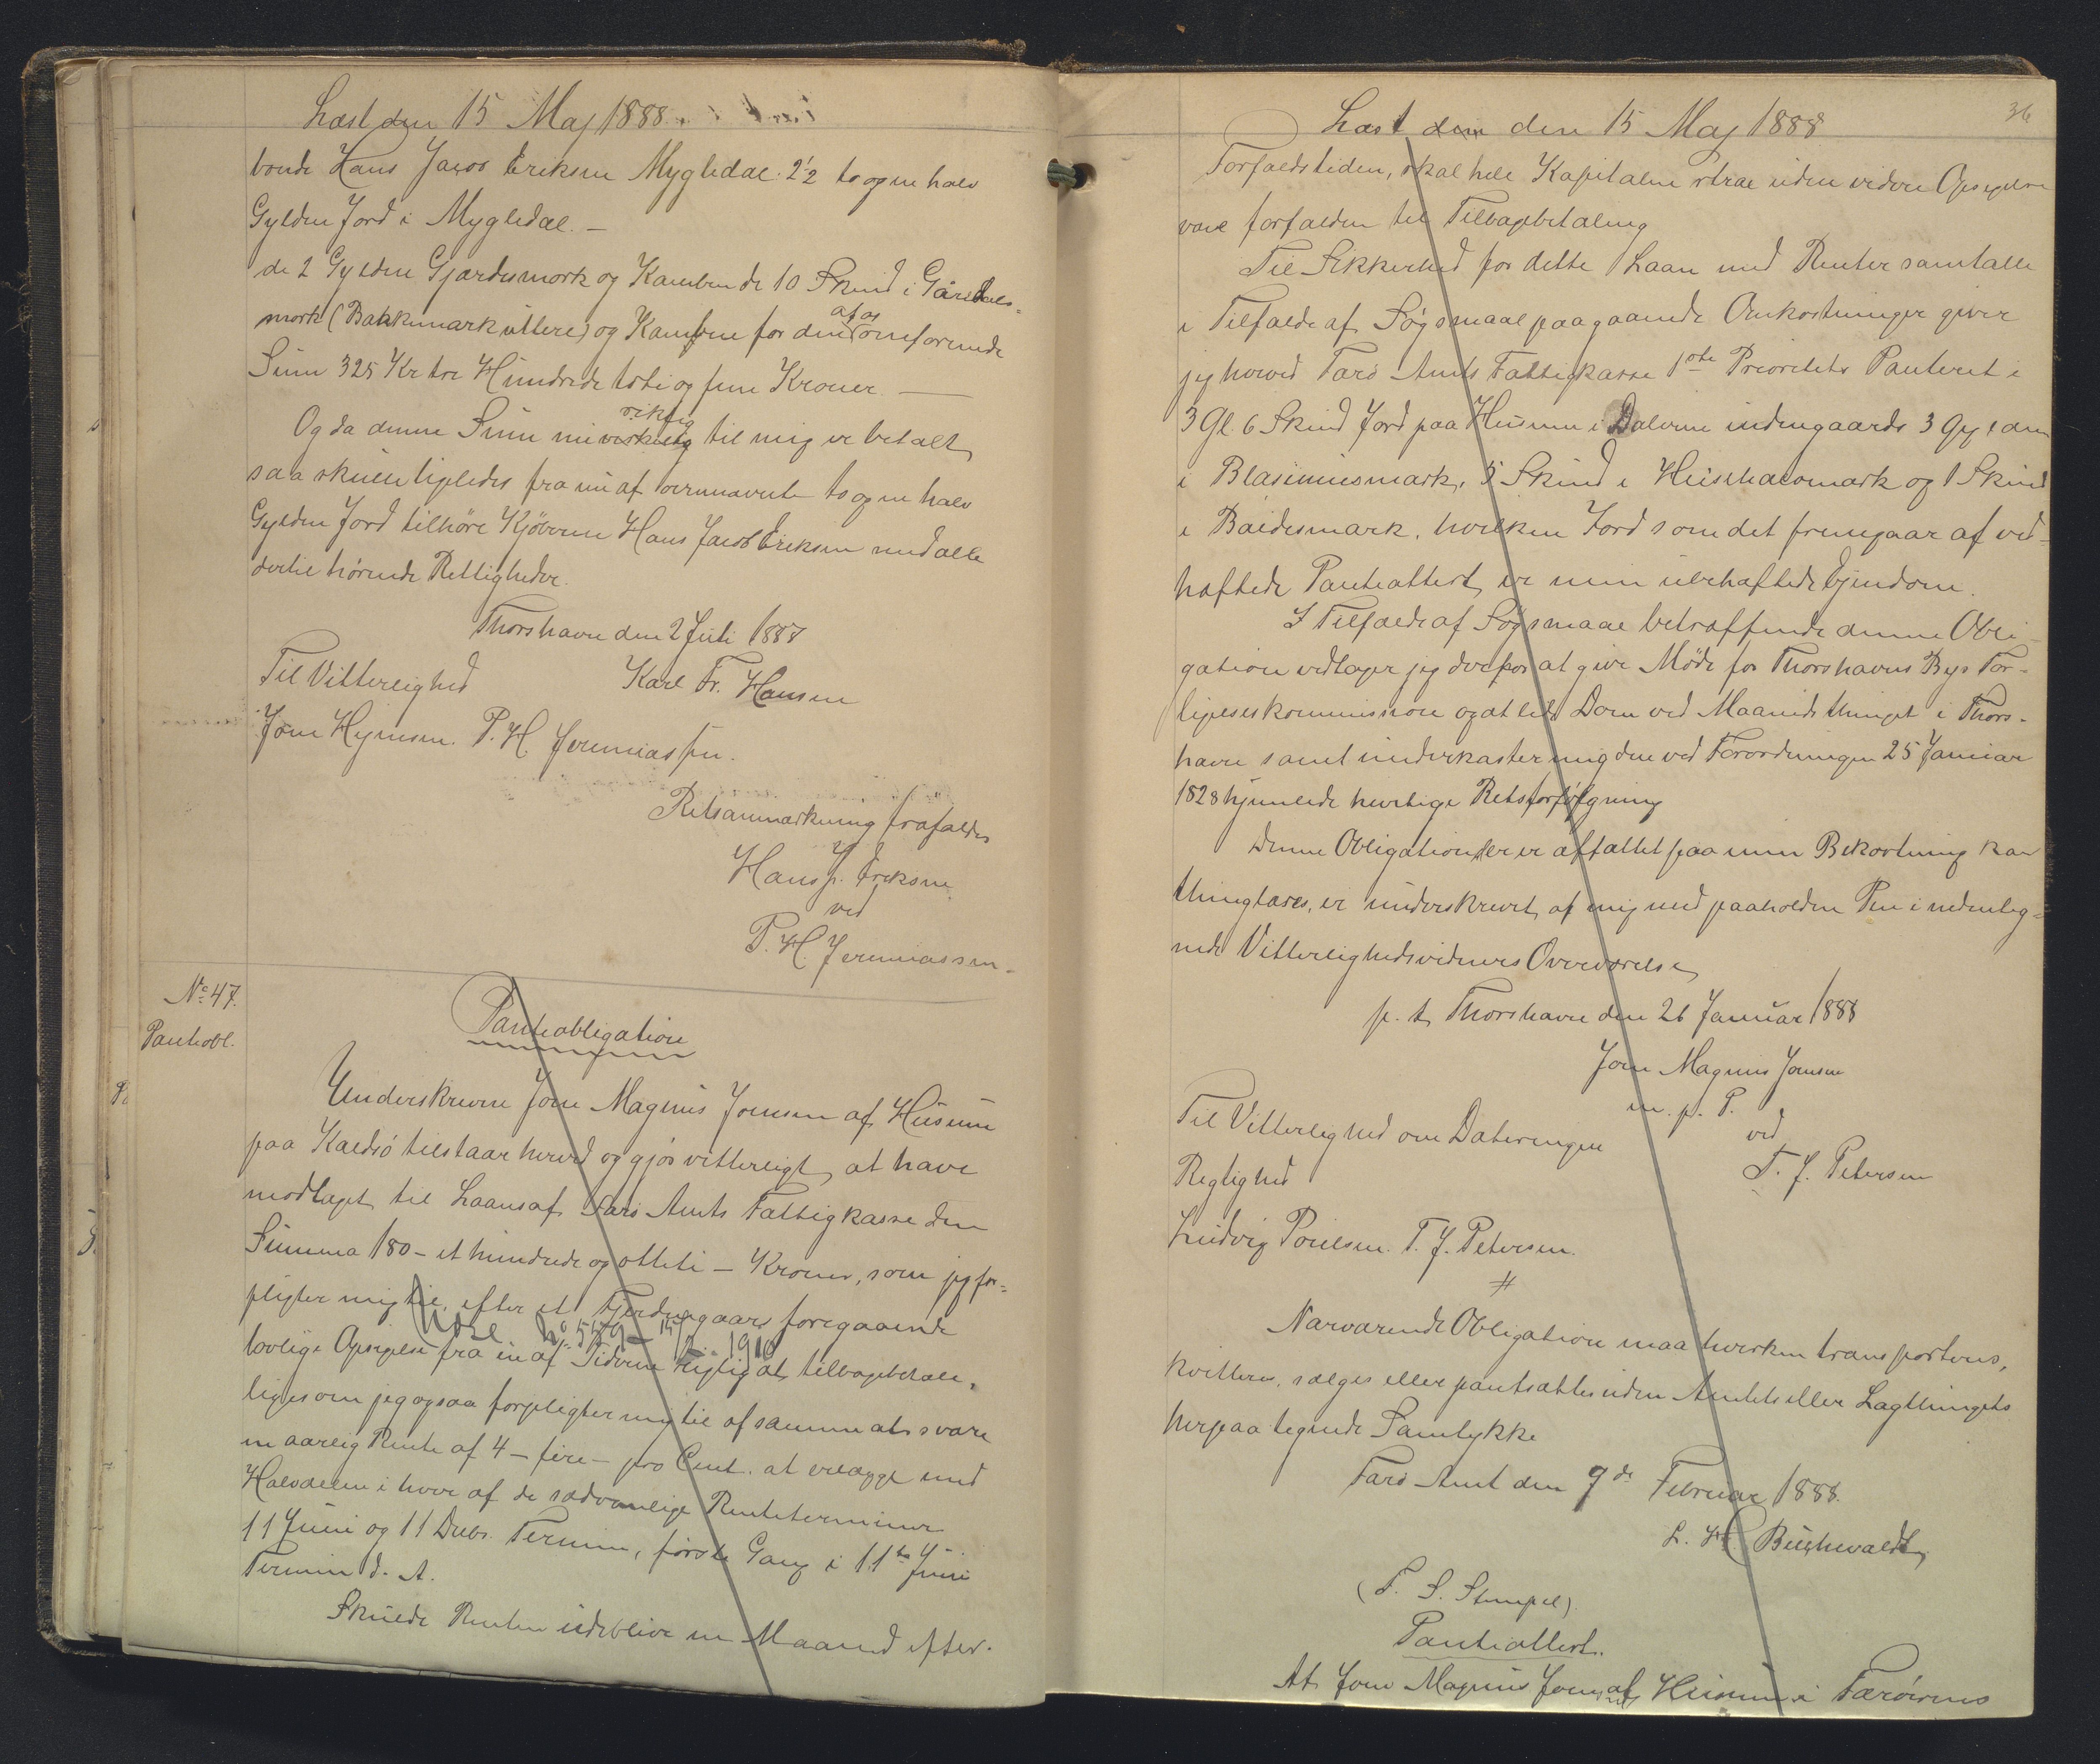 Læst den 15 Maj 1888
bonde Hans Jacob Eriksen Mygledal 2 1/2 to og en halv
Gylden Jord i Mygledal. –
de 2 Gylden Gjærdismork og Kambende 10 Skind i Garsdals-
mork (Bakkemark uttere) og Kambene for den af os omforenede
Sum 325 Kr tre Hundrede toti og fem Kroner. —
Og da denne Sum nu virkelig riktig til mig er betalt,
saa skulle ligeledes fra nu af ovennævnte to og en halv
Gylden Jord tilhöre Kjöberen Hans Jacob Eriksen med alle
dertil hørende Rettigheder.
Thorshavn den 2 Juli 1887
Til Vitterlighed Karl Fr. Hansen
Joen Hejnesen. P. H. Jeremiassen.
Retsanmærkning frafaldes
Hans J. Eriksen
ved
P. H. Jeremiassen.
No 47.
Panteobl.
Panteobligation
Underskrevne Joen Magnus Joensen af Husum
paa Kaldsö tilstaar herved og gjör vitterligt, at have
modtaget til Laans af Færö Amts Fattigkasse den
Summa 180 – et hundrede og otteti – Kroner, som jeg for-
pligter mig til, efter et Fjerdingaars foregaaende
lovlige Opsigelse fra en af Siderne rigtig at tilbagebetale,
No 529 – 1910
ligesom jeg ogsaa forpligter mig til af samme at svare
en aarlig Rente af 4 – fire – pro Cent. at erlægge med
Halvdelen i hver af de sædvanlige Renteterminer
11 Juni og 11 Decbr. Termin, förste Gang i 11te Juni
Termin d. A.
Skulde Renten udeblive en Maaned efter
36
Læst den den 15 Maj 1888
Forfaldstiden, skal hele Kapitalen strax uden videre Opsigelse
være forfalden til Tilbagebetaling
Til Sikkerhed for dette Laan med Renter samt alle
i Tilfælde af Søgsmaal paagaaende Omkostninger giver
jeg herved Færö Amts Fattigkasse 1ste Prioritets Panteret i
3 Gl. 6 Skind Jord paa Husum i Dalerne indengaards 3 Gylden
i Blasiinusmark, 5 Skind i Huschalsmark og 1 Skind
i Baidesmark, hvilken Jord som det fremgaar af ved-
hæftede Panteattest, er min ubehæftede Ejendom.
I Tilfælde af Søgsmaal betræffende denne Obli-
gation vedtager jeg derfor at give Møde for Thorshavns Bys For-
ligelseskommission og at lide Dom ved Maanedsthinget i Thors-
havn samt underkaster mig den ved Forordningen 25 Januar
1828 hjemlede hurtige Retsforfölgning
Denne Obligation, der er affattet paa min Bekostning kan
thinglæses, er underskrevet af mig med paaholden Pen i nedenteg-
nede Vitterlighedsvidners Overværelse
p. t. Thorshavn den 26 Januar 1888
Joen Magnus Joensen
m. p. P.
ved
T. J. Petersen
Til Vitterlighed om Dateringen
Rigtighed
Ludvig Poulsen. T. J. Petersen.
#
Nærværende Obligation maa hverken transporteres,
kvitteres, sælges eller pantsættes uden Amtets eller Lagthingets
herpaa tegnede Samtykke
Færö Amt den 9de Februar 1888.
L. H. Buchwaldt,
(T. S. Stempel).
Panteattest.
At Joen Magnus Joensen af Husum i Færöernes